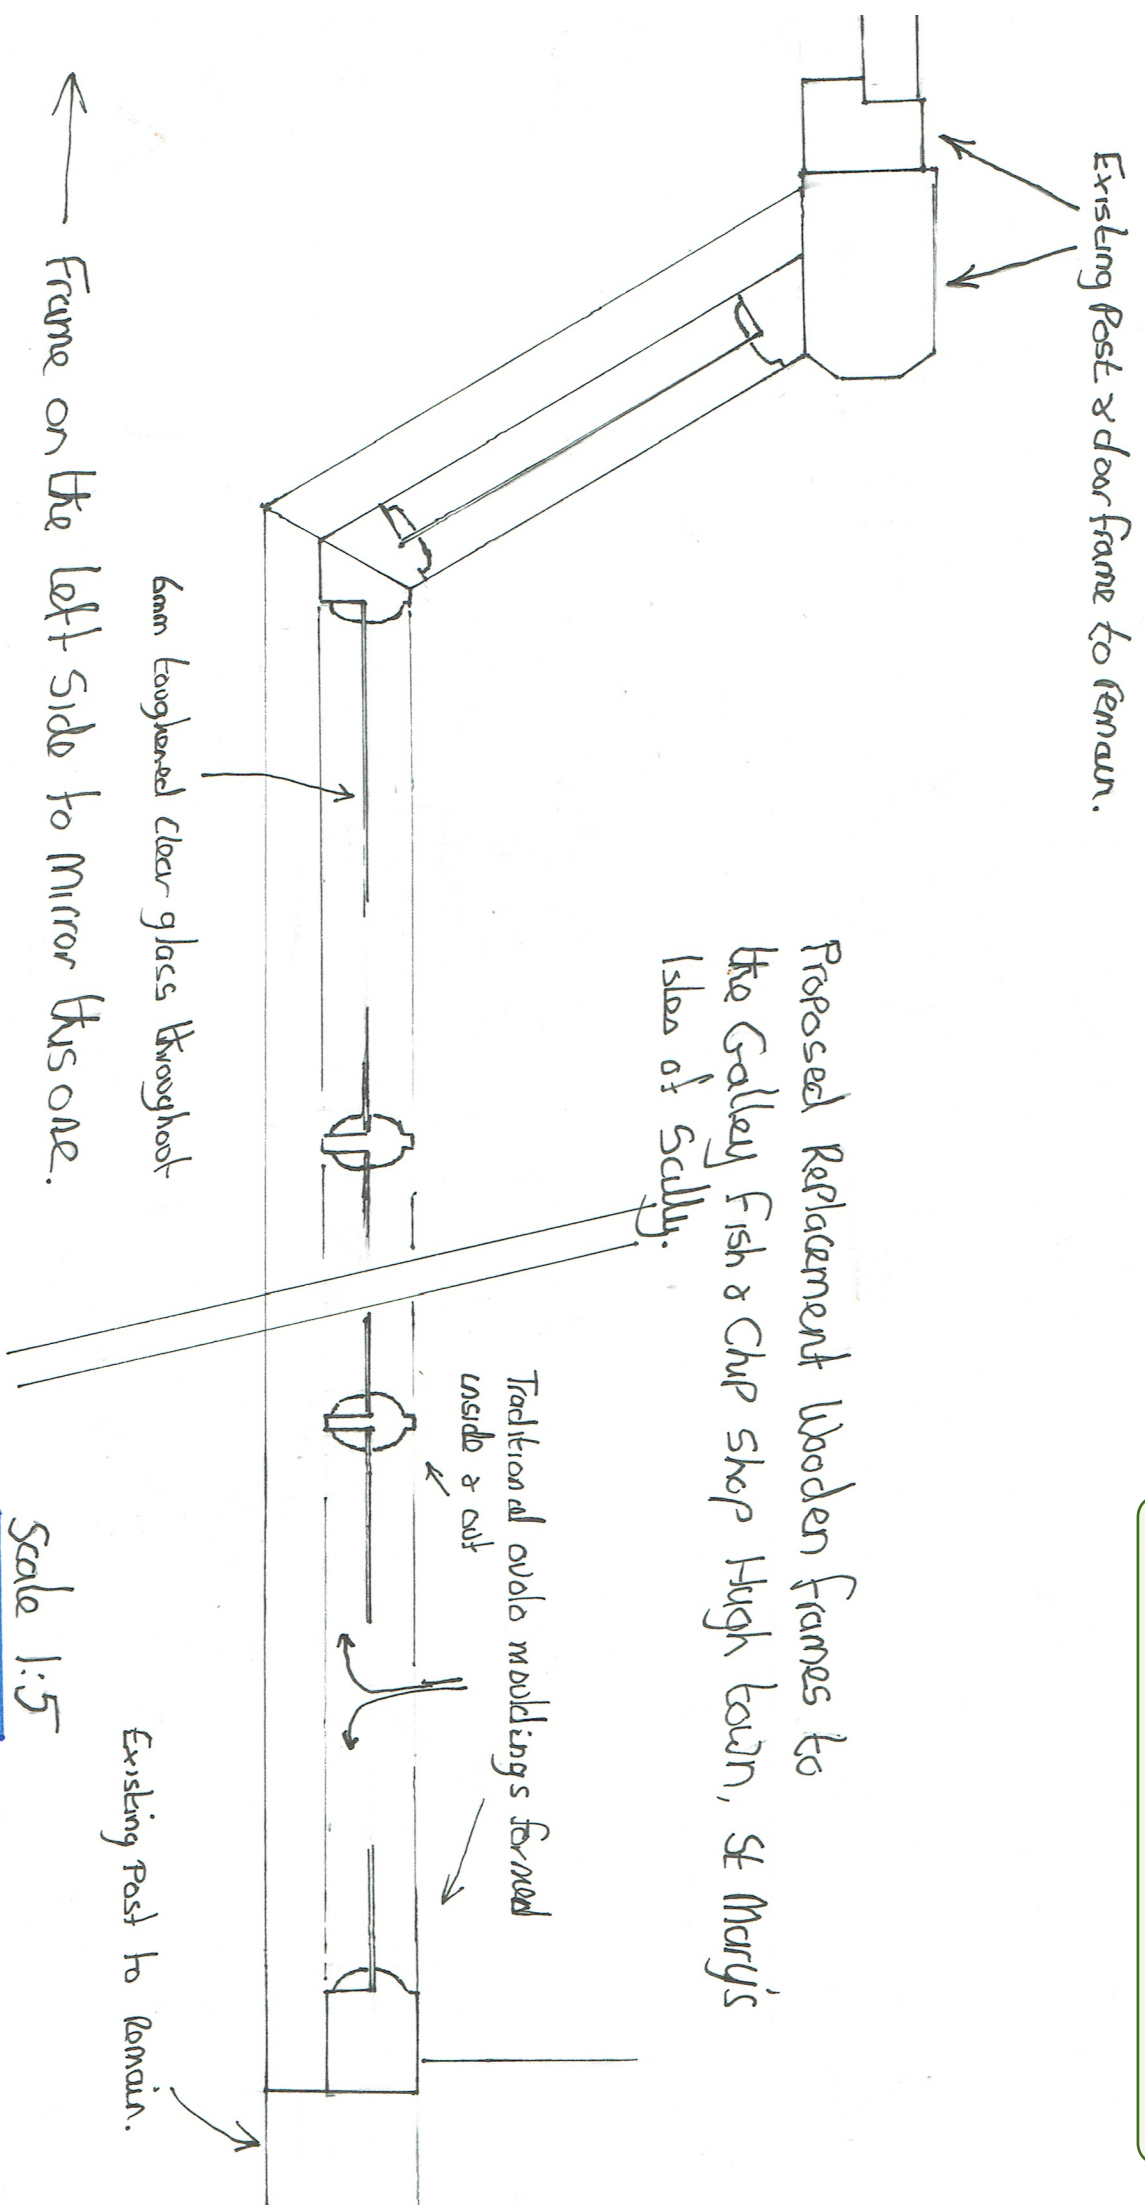 Existing Post & door frame to remain.
Proposed Replacement Wooden frames to
the Galley Fish & Chip shop Hugh town, St Mary's
Isles of Scilly.
Traditional ovolo mouldings formed
inside & out
6mm toughened clear glass throughout
Existing Post to Remain.
Frame on the left side to Mirror this one.
Scale 1:5